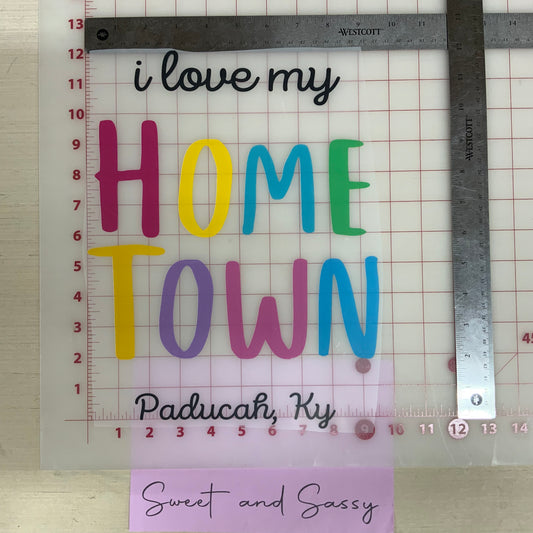 13
12
11
10
9
8
7
6
5
4
3
2
1
WESTCOTT
WESTCOTT
i love my
HOME
TOWN
Paducah, Ky
1 2 3 4 5 6 7 8 9 10 11 12 13 14
45
Sweet and Sassy